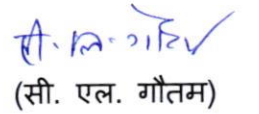 सी. एल. गौतम
(सी. एल. गौतम)